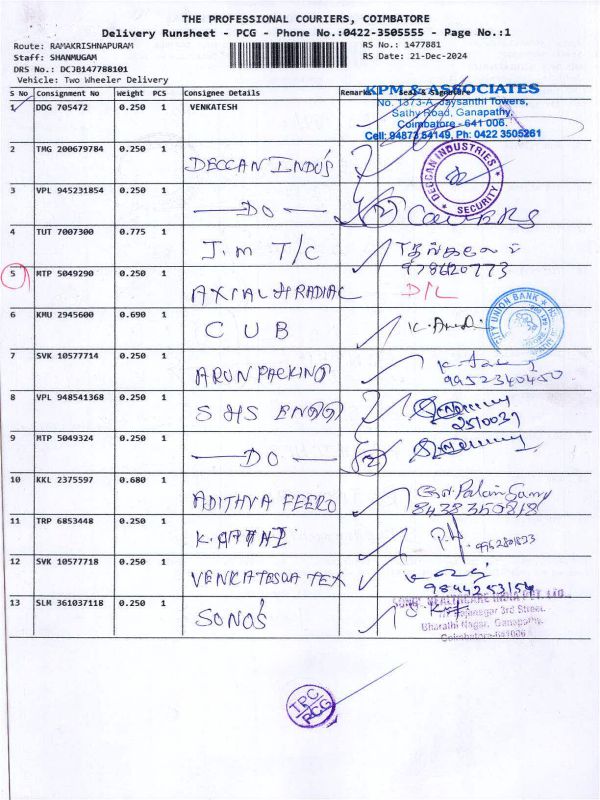 THE PROFESSIONAL COURIERS, COIMBATORE
Delivery Runsheet - PCG - Phone No.:0422-3505555 - Page No.:1
Route: RAMAKRISHNAPURAM
RS No.: 1477881
Staff: SHANMUGAM
RS Date: 21-Dec-2024
DRS No.: DCJB147788101
Vehicle: Two Wheeler Delivery
S No Consignment No Weight PCS Consignee Details Remarks Seal & Signature
1 DDG 705472 0.250 1 VENKATESH
KPM & ASSOCIATES
No. 1373-A, Jaysanthi Towers,
Sathy Road, Ganapathy,
Coimbatore - 641 006.
Cell: 94873 54149, Ph: 0422 3505261
2 TMG 200679784 0.250 1
DECCAN INDUS
DECCAN INDUSTRIES
SECURITY
3 VPL 945231854 0.250 1
DO 2
4 TUT 7007300 0.775 1
J.M T/C
5 MTP 5049290 0.250 1
AXIAL & RADIAL D/L
6 KMU 2945600 0.690 1
CUB
CITY UNION BANK
7 SVK 10577714 0.250 1
ARUN PACKING
9952340450
8 VPL 948541368 0.250 1
S & S ENGG
9 MTP 5049324 0.250 1
DO 2
10 KKL 2375597 0.680 1
ADITHYA FEERO
8438350818
11 TRP 6853448 0.250 1
12 SVK 10577718 0.250 1
VENKATESWA TEX
13 SLM 361037118 0.250 1
SONO'S
Bharathi Nagar, Ganapathy,
TPC
PCG